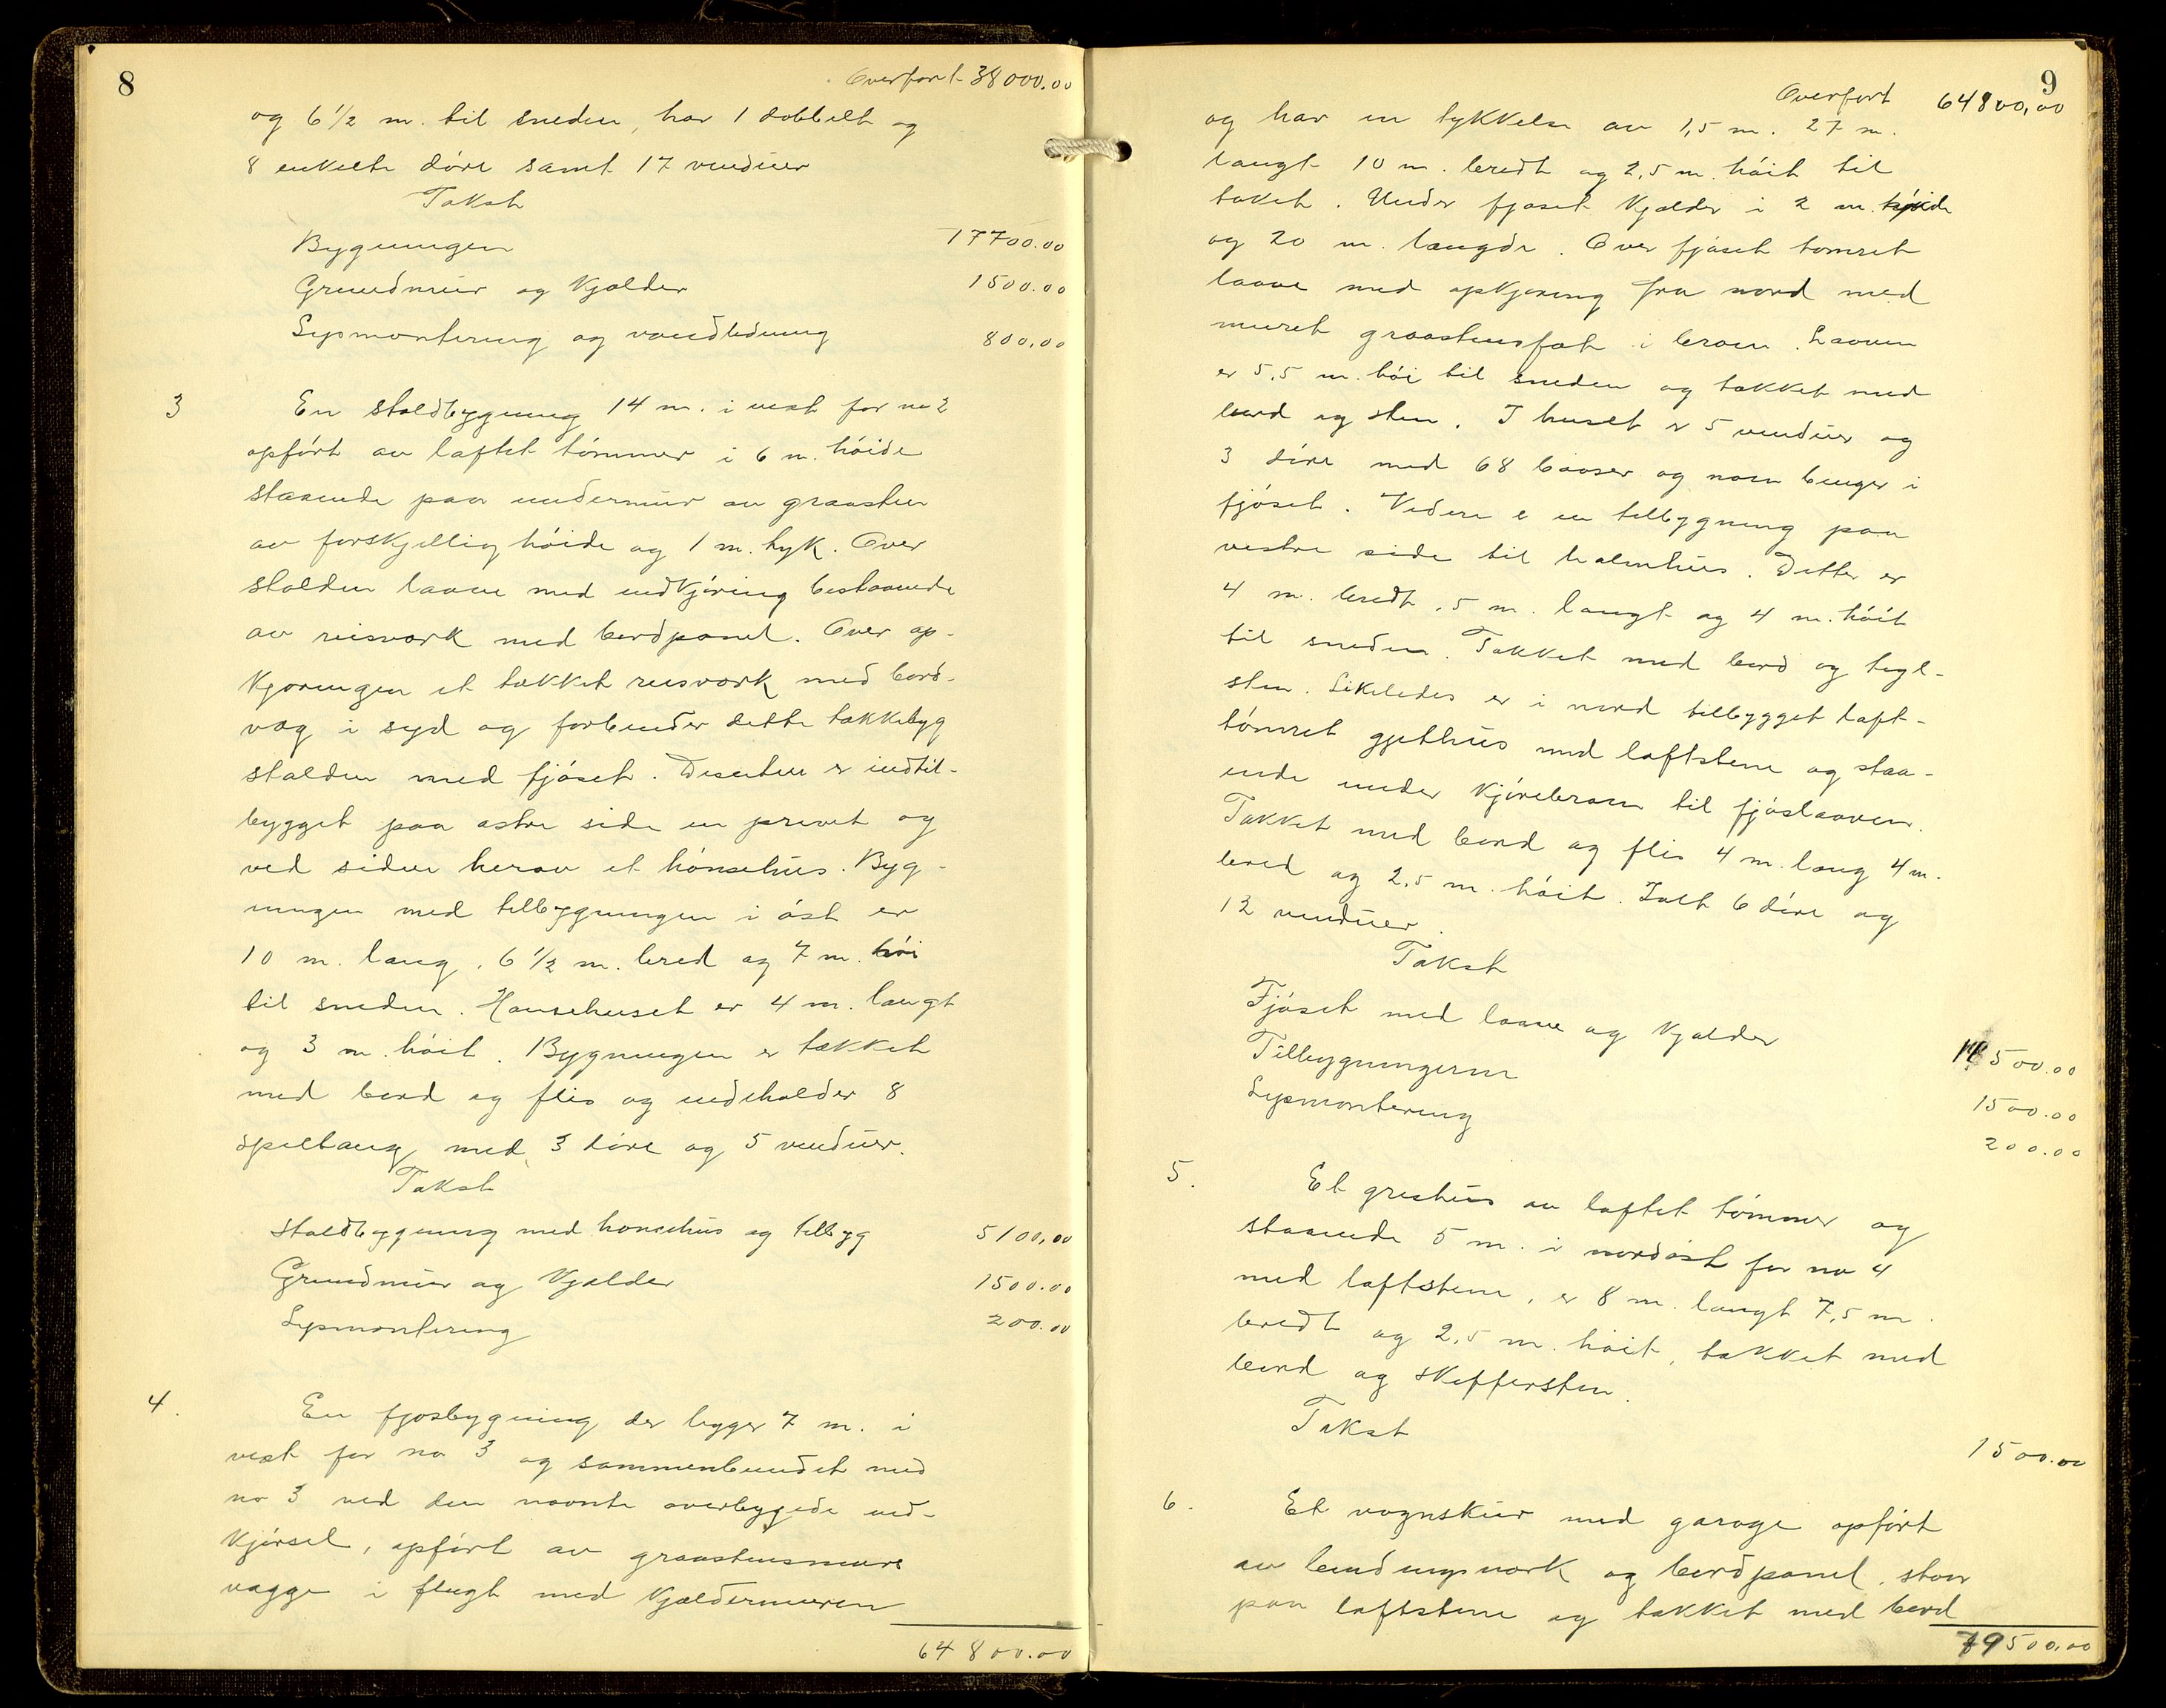 8
Overført 38000.00
og 6 1/2 m. til sneden, har 1 dobbelt og
8 enkelte döre samt 17 vinduer
Takst
Bygningen 17700.00
Grundmur og Kjælder 1500.00
Lysmontering og vandledning 800.00
3 En staldbygning 14 m. i vest for no 2
opfört av laftet tömmer i 6 m. höide
staaende paa undermur av graasten
av forskjellig höide og 1 m. tyk. Over
stalden laave med indkjöring bestaaende
av reisverk med bordpanel. Over op-
kjöringen et tækket reisverk med bord-
væg i syd og forbinder dette takkebyg
stalden med fjöset. Desuten er indtil-
bygget paa östre side en privet og
ved siden herav et hönsehus. Byg-
ningen med tilbygningen i öst er
10 m. lang, 6 1/2 m. bred og 7 m. höi
til sneden. Hönsehuset er 4 m. langt
og 3 m. höit. Bygningen er tækket
med bord og flis og indeholder 8
spiltaug med 3 döre og 5 vinduer.
Takst
Staldbygning med hönsehus og tilbyg 5100,00
Grundmur og Kjælder 1500.00
Lysmontering 200.00
4. En fjösbygning der ligger 7 m. i
vest for no 3 og sammenbundet med
no 3 ved den nævnte overbygede ind-
kjörsel, opfört av graastensmure
vægge i flugt med Kjældermuren
64800.00
9
Overført 64800,00
og har en tykkelse av 1,5 m. 27 m.
langt 10 m. bredt og 2,5 m. höit til
taket. Under fjöset Kjælder i 2 m. höide
og 20 m. længde. Over fjöset tömret
laave med opkjöring fra nord med
muret graastensfot i broen. Laaven
er 5,5 m. höi til sneden og tækket med
bord og sten. I huset er 5 vinduer og
3 döre med 68 baaser og noen binger i
fjöset. Videre e en tilbygning paa
vestre side til halmhus. Dette er
4 m. bredt, 5 m. langt og 4 m. höit
til sneden. Tækket med bord og tegl-
sten. Likeledes er i nord tilbygget laft-
tömret gjethus med laftstene og staa-
ende under Kjörebroen til fjöslaaven.
Tækket med bord og flis 4 m. lang 4 m.
bred og 2,5 m. höit. Ialt 6 döre og
12 vinduer.
Takst
Fjöset med laave og Kjælder 11500.00
Tilbygningerne 1500.00
Lysmontering 200.00
5. Et grishus av laftet tömmer og
staaende 5 m. i nordöst for no 4
med laftstene, er 8 m. langt 7,5 m.
bredt og 2,5 m. höit, tækket med
bord og skiffersten.
Takst
1500.00
6. Et vognskur med garage opfört
av bindingsverk og bordpanel, staar
paa laftstene og tækket med bord
79500.00